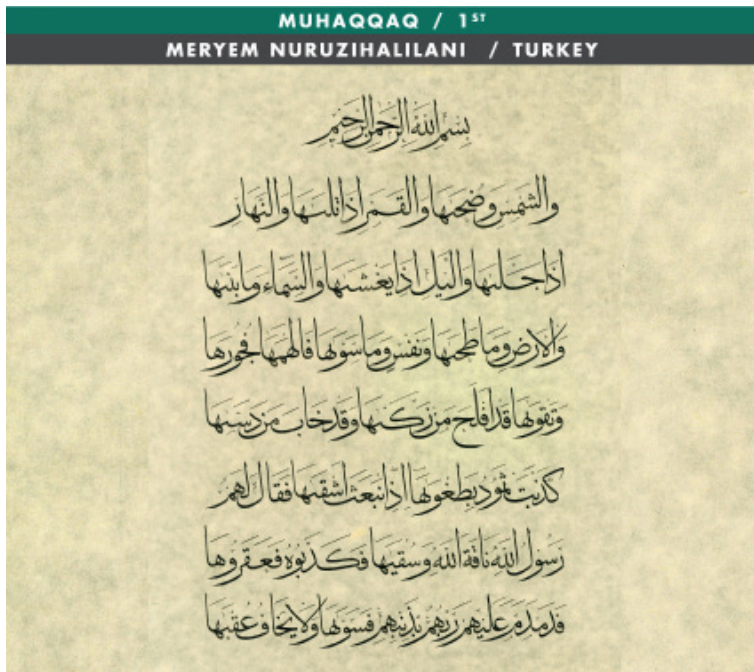 MUHAQQAQ / 1ST
MERYEM NURUZIHALILANI / TURKEY
بسم الله الرحمن الرحيم
والشمس وضحيها والقمر اذا تليها والنهار
اذا جليها واليل اذا يغشيها والسماء وما بنيها
والارض وما طحيها ونفس وما سويها فالهمها فجورها
وتقويها قد افلح من زكيها وقد خاب من دسيها
كذبت ثمود بطغويها اذ انبعث اشقيها فقال لهم
رسول الله ناقة الله وسقيها فكذبوه فعقروها
فدمدم عليهم ربهم بذنبهم فسويها ولا يخاف عقبيها